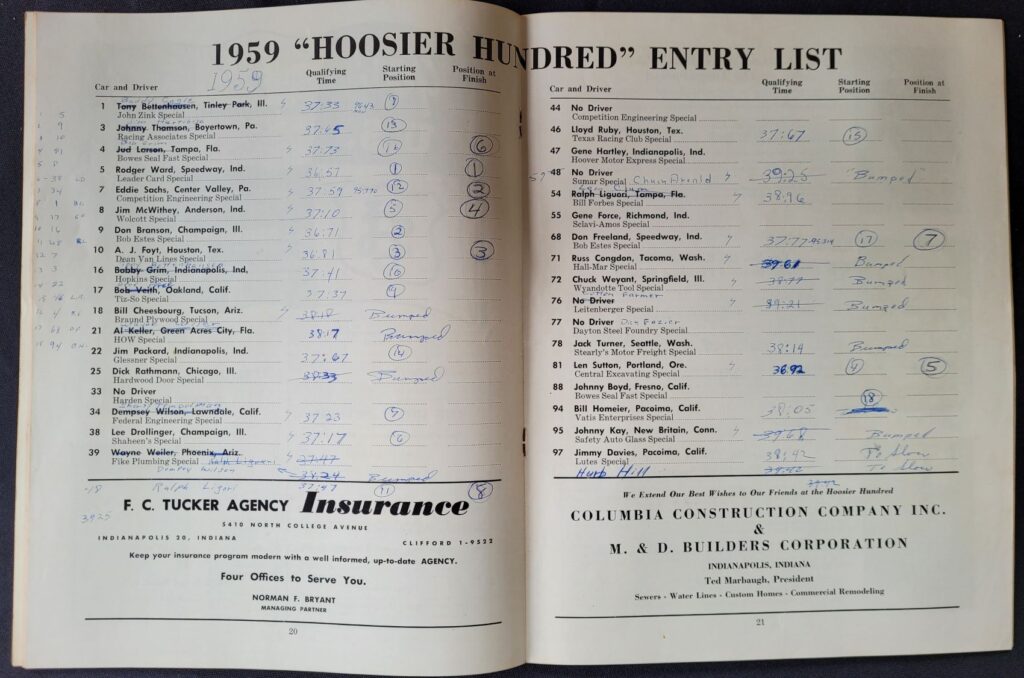 1959 "HOOSIER HUNDRED" ENTRY LIST
1959
Car and Driver Qualifying Time Starting Position Position at Finish
1 Tony Bettenhausen, Tinley Park, Ill. 37:33 7
John Zink Special
3 Johnny Thomson, Boyertown, Pa. 37.45 13
Racing Associates Special
4 Jud Larson, Tampa, Fla. 37:73 6
Bowes Seal Fast Special
5 Rodger Ward, Speedway, Ind. 36.57 1 1
Leader Card Special
7 Eddie Sachs, Center Valley, Pa. 37.59 12 2
Competition Engineering Special
8 Jim McWithey, Anderson, Ind. 37:10 5 4
Wolcott Special
9 Don Branson, Champaign, Ill. 36.71 2
Bob Estes Special
10 A. J. Foyt, Houston, Tex. 36.81 3 3
Dean Van Lines Special
16 Bobby Grim, Indianapolis, Ind, 37:41 10
Hopkins Special
17 Bob Veith, Oakland, Calif. 37:37
Tiz-So Special
18 Bill Cheesbourg, Tucson, Ariz. 38:18 Bumped
Braund Plywood Special
21 Al Keller, Green Acres City, Fla. 38:17 Bumped
HOW Special
22 Jim Packard, Indianapolis, Ind. 37:67 14
Glessner Special
25 Dick Rathmann, Chicago, Ill. 38:33 Bumped
Hardwood Door Special
33 No Driver
Harden Special
34 Dempsey Wilson, Lawndale, Calif. 37 23 7
Federal Engineering Special
38 Lee Drollinger, Champaign, Ill. 37:17 6
Shaheen's Special
39 Wayne Weiler, Phoenix, Ariz. 37:47
Fike Plumbing Special
Dempsey Wilson 38:24 Bumped
Ralph Ligori 37:47 11 8
3925
F. C. TUCKER AGENCY Insurance
5410 NORTH COLLEGE AVENUE
INDIANAPOLIS 20, INDIANA CLIFFORD 1-9522
Keep your insurance program modern with a well informed, up-to-date AGENCY.
Four Offices to Serve You.
NORMAN F. BRYANT
MANAGING PARTNER
20
Car and Driver Qualifying Time Starting Position Position at Finish
44 No Driver
Competition Engineering Special
46 Lloyd Ruby, Houston, Tex. 37:67 15
Texas Racing Club Special
47 Gene Hartley, Indianapolis, Ind.
Hoover Motor Express Special
48 No Driver 39:25 "Bumped"
Sumar Special Chuck Arnold
54 Ralph Liguori, Tampa, Fla. 38.96
Bill Forbes Special
55 Gene Force, Richmond, Ind.
Sclavi-Amos Special
68 Don Freeland, Speedway, Ind. 37:77 17 7
Bob Estes Special
71 Russ Congdon, Tacoma, Wash. 39:61 Bumped
Hall-Mar Special
72 Chuck Weyant, Springfield, Ill. Bumped
Wyandotte Tool Special
76 No Driver 39:21 Bumped
Leitenberger Special
77 No Driver
Dayton Steel Foundry Special
78 Jack Turner, Seattle, Wash. 38:14 Bumped
Stearly's Motor Freight Special
81 Len Sutton, Portland, Ore. 36.92 5
Central Excavating Special
88 Johnny Boyd, Fresno, Calif.
Bowes Seal Fast Special
94 Bill Homeier, Pacoima, Calif. 38:05 18
Vatis Enterprises Special
95 Johnny Kay, New Britain, Conn. 39:68 Bumped
Safety Auto Glass Special
97 Jimmy Davies, Pacoima, Calif. 38:42 To Slow
Lutes Special
Hurb Hill To Slow
We Extend Our Best Wishes to Our Friends at the Hoosier Hundred
COLUMBIA CONSTRUCTION COMPANY INC.
&
M. & D. BUILDERS CORPORATION
INDIANAPOLIS, INDIANA
Ted Marbaugh, President
Sewers - Water Lines - Custom Homes - Commercial Remodeling
21